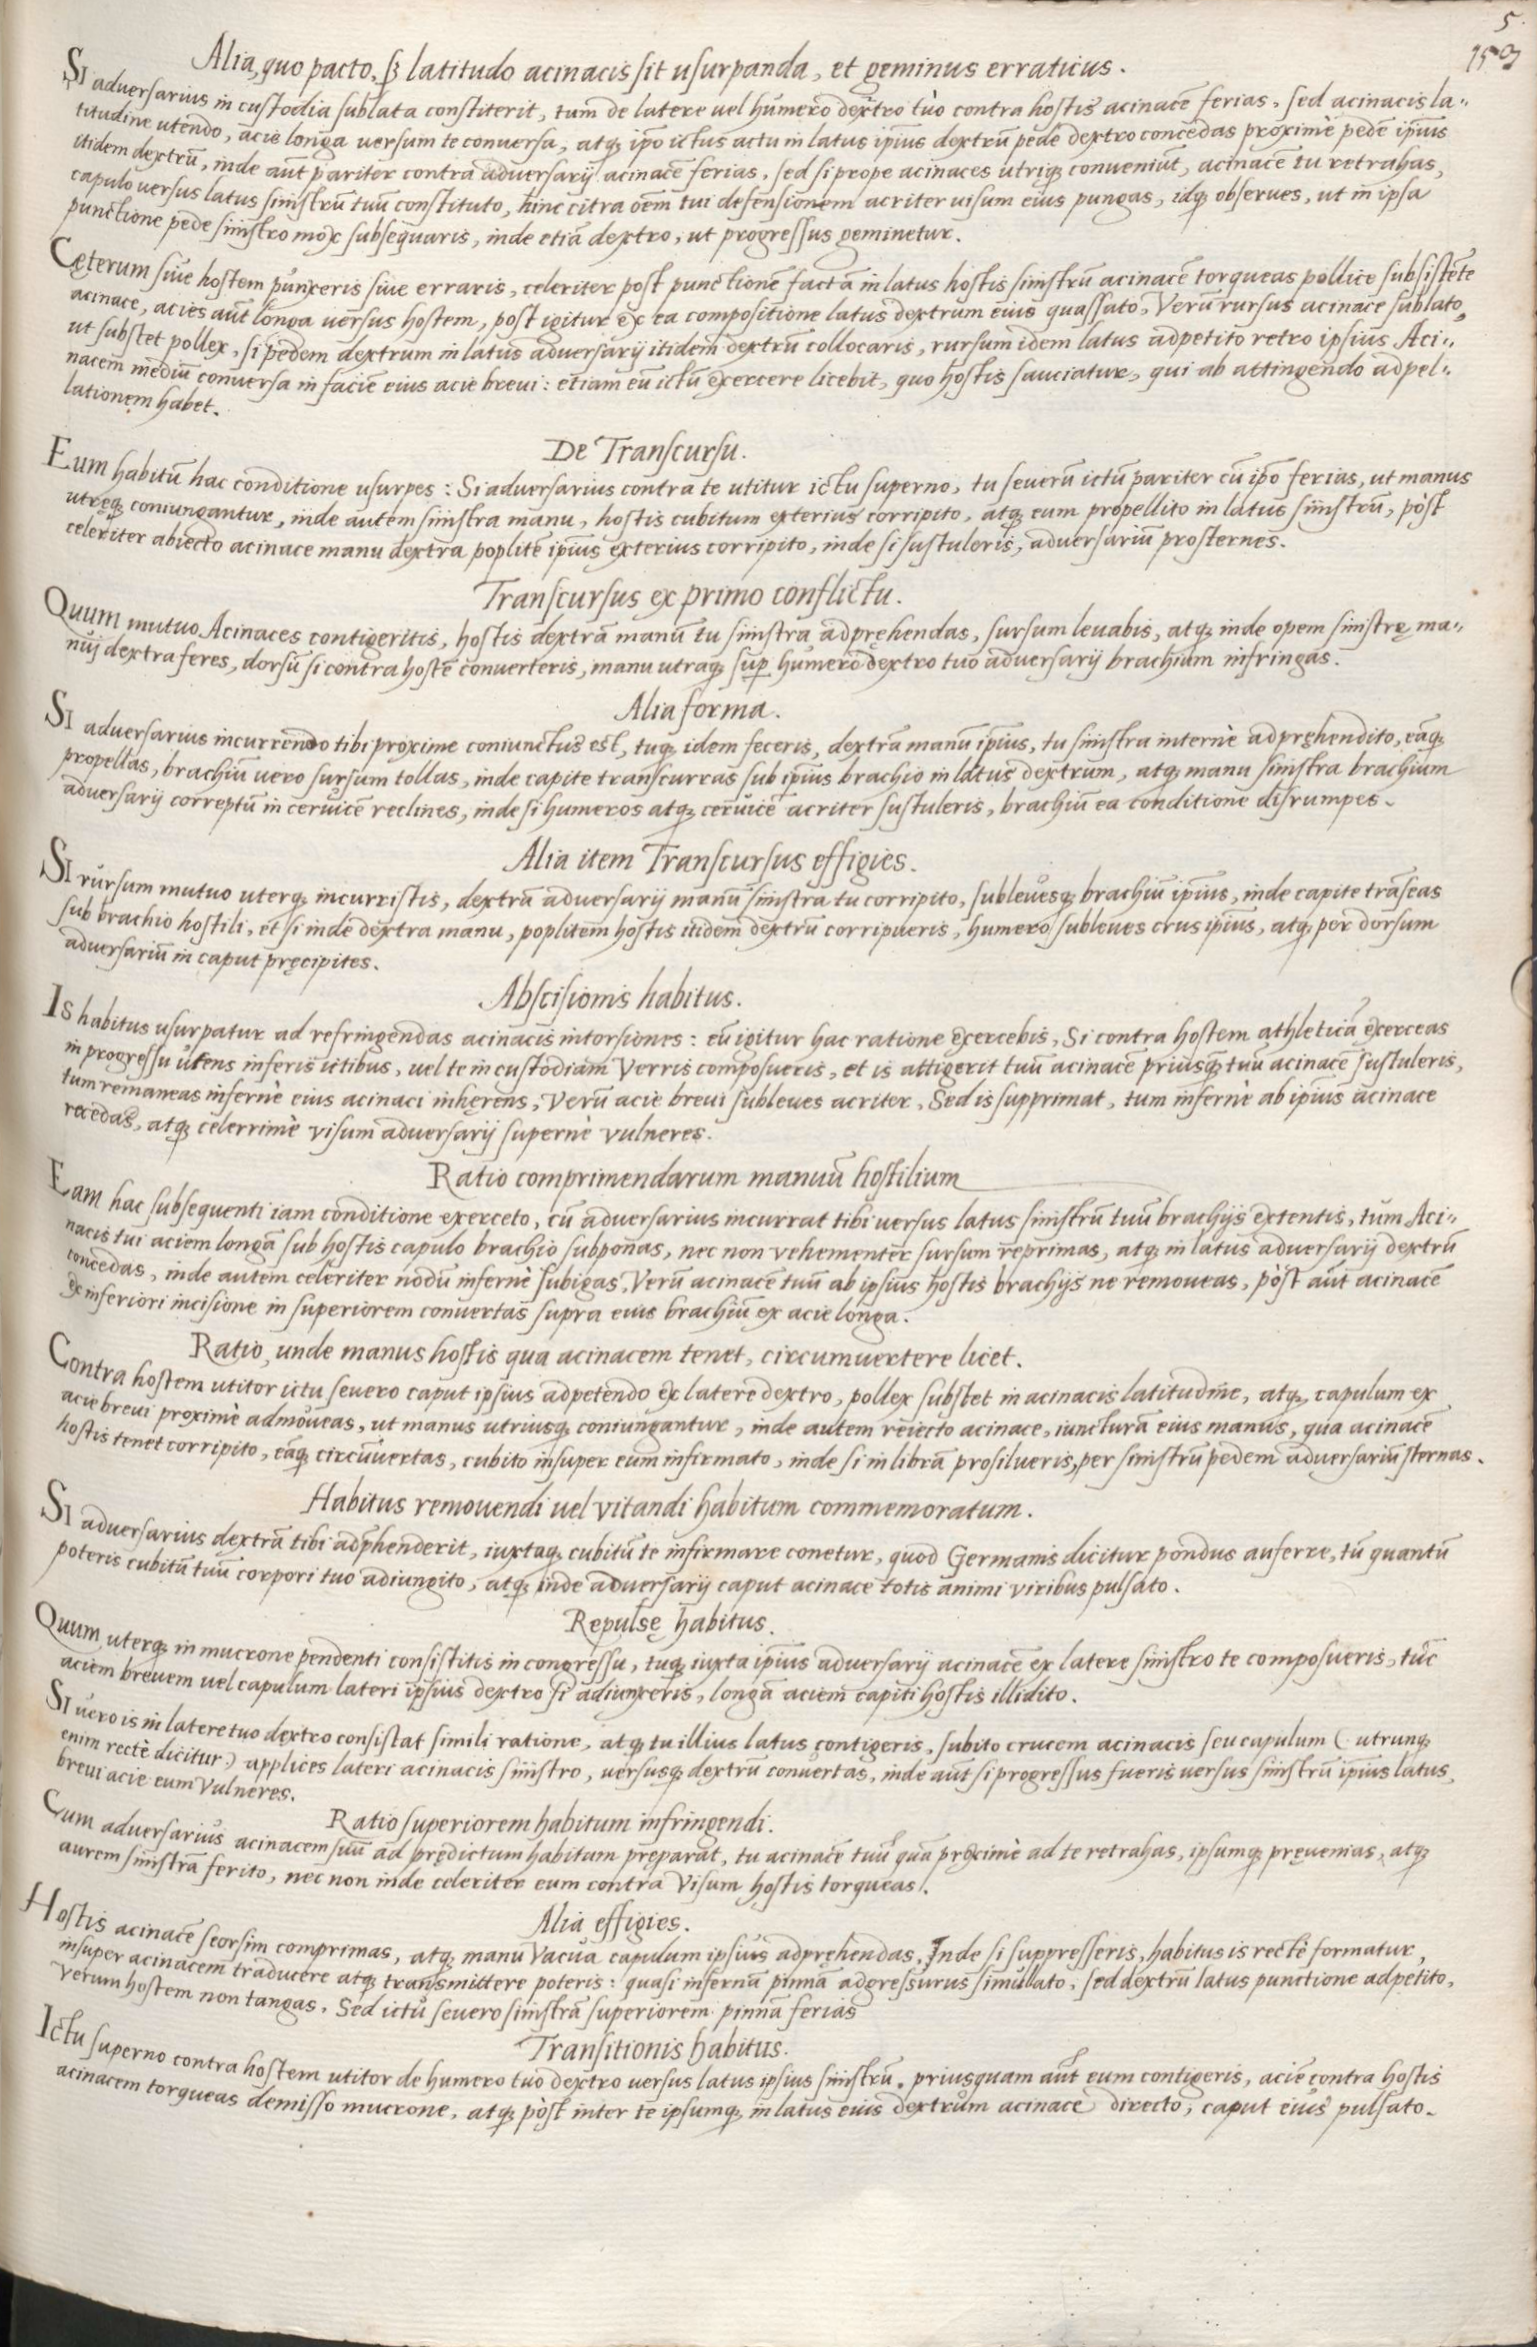 5.
153
Alia, quo pacto, ꝑ latitudo acinacis sit usurpanda, et geminus erraticus.
SI adversarius in custodia sublata constiterit, tum de latere vel humero dextro tuo contra hostis acinacē ferias, sed acinacis la-
titudine utendo, acie longa versum te conversa, atqȝ ipo ictus actu in latus ipius dextrū pede dextro concedas proximè pedē ipius
itidem dextrū, inde aūt pariter contra adversarij acinacē ferias, sed si prope acinaces utriqȝ conveniūt, acinacē tu retrahas,
capulo versus latus sinistrū tuū constituto, hinc citra oēm tui defensionem acriter visum eius pungas, idqȝ observes, ut in ipsa
punctione pede sinistro mox subsequaris, inde etiā dextro, ut progressus geminetur.
Cęterum sive hostem punxeris sive erraris, celeriter post punctionē factā in latus hostis sinistrū acinacē torqueas pollice subsistēte
acinace, acies aūt longa versus hostem, post igitur ex ea compositione latus dextrum eius quassato, Verū rursus acinace sublato,
ut substet pollex, si pedem dextrum in latus adversarij itidem dextrū collocaris, rursum idem latus adpetito retro ipsius Aci-
nacem mediū conversa in faciē eius acie brevi: etiam eū ictū exercere licebit, quo hostis sauciatur, qui ab attingendo adpel-
lationem habet.
De Transcursu.
Eum habitū hac conditione usurpes: Si adversarius contra te utitur ictu superno, tu severū ictū pariter cū ipo ferias, ut manus
utręqȝ coniungantur, inde autem sinistra manu, hostis cubitum exterius corripito, atqȝ eum propellito in latus sinistrū, pòst
celeriter abiecto acinace manu dextra poplitē ipius exterius corripito, inde si sustuleris, adversariū prosternes.
Transcursus ex primo conflictu.
Quum mutuo Acinaces contigeritis, hostis dextrā manū tu sinistra adpręhendas, sursum levabis, atqȝ inde opem sinistrę ma-
nuj dextra feres, dorsū si contra hostē converteris, manu utraqȝ sup humero dextro tuo adversarij brachium infringas.
Alia forma.
SI adversarius incurrendo tibi proxime coniunctus est, tuqȝ idem feceris, dextrā manū ipius, tu sinistra internè adpręhendito, eāqȝ
propellas, brachiū vero sursum tollas, inde capite transcurras sub ipius brachio in latus dextrum, atqȝ manu sinistra brachium
adversarij correptū in cervicē reclines, inde si humeros atqȝ cervicē acriter sustuleris, brachiū ea conditione disrumpes.
Alia item Transcursus effigies.
SI rursum mutuo uterqȝ incurristis, dextrā adversarij manū sinistra tu corripito, sublevesqȝ brachiū ipius, inde capite trāseas
sub brachio hostili, et si inde dextra manu, poplitem hostis itidem dextrū corripueris, humero subleves crus ipius, atqȝ per dorsum
adversariū in caput pręcipites.
Abscisionis habitus.
Is habitus usurpatur ad refringendas acinacis intorsiones: eū igitur hac ratione exercebis, Si contra hostem athleticā exerceas
in progressu utens inferis ictibus, vel te in custodiam Verris composueris, et is attigerit tuū acinacē priusqȝ tuū acinacē sustuleris,
tum remaneas infernè eius acinaci inhęrens, Verū acie brevi subleves acriter, Sed is supprimat, tum infernè ab ipius acinace
recedas, atqȝ celerrimè visum adversarij supernè vulneres.
Ratio comprimendarum manuū hostilium
Eam hac subsequenti iam conditione exerceto, cū adversarius incurrat tibi versus latus sinistrū tuū brachijs extentis, tum Aci-
nacis tui aciem longā sub hostis capulo brachio subponas, nec non vehementer sursum reprimas, atqȝ in latus adversarij dextrū
concedas, inde autem celeriter nodū infernè subigas, Verū acinacē tuū ab ipsius hostis brachijs ne removeas, pòst aūt acinacē
ex inferiori incisione in superiorem convertas supra eius brachiū ex acie longa.
Ratio, unde manus hostis qua acinacem tenet, circumvertere licet.
Contra hostem utitor ictu severo caput ipsius adpetendo ex latere dextro, pollex substet in acinacis latitudine, atqȝ capulum ex
acie brevi proximè admoveas, ut manus utriusqȝ coniungantur, inde autem reiecto acinace, iuncturā eius manus, qua acinacē
hostis tenet corripito, eāqȝ circūvertas, cubito insuper eum infirmato, inde si in librā prosilueris, per sinistrū pedem adversariū sternas.
Habitus removendi vel vitandi habitum commemoratum.
SI adversarius dextrā tibi adphenderit, iuxtaqȝ cubitū te infirmare conetur, quod Germanis dicitur pondus auferre, tū quantū
poteris cubitū tuū corpori tuo adiungito, atqȝ inde adversarij caput acinace totis animi viribus pulsato.
Repulsę habitus.
Quum uterqȝ in mucrone pendenti consistitis in congressu, tuqȝ iuxta ipius adversarij acinacē ex latere sinistro te composueris, tūc
aciem brevem vel capulum lateri ipsius dextro si adiunxeris, longā aciem capiti hostis illidito.
SI vero is in latere tuo dextro consistat simili ratione, atqȝ tu illius latus contigeris, subito crucem acinacis seu capulum (utrunqȝ
enim rectè dicitur) applices lateri acinacis sinistro, versusqȝ dextrū convertas, inde aūt si progressus fueris versus sinistrū ipius latus,
brevi acie eum Vulneres.
Ratio superiorem habitum infringendi.
Cum adversarius acinacem suū ad prędictum habitum pręparat, tu acinacē tuū quā proximè ad te retrahas, ipsumqȝ pręvenias, atqȝ
aurem sinistrā ferito, nec non inde celeriter eum contra Visum hostis torqueas.
Alia effigies.
Hostis acinacē seorsim comprimas, atqȝ manu Vacua capulum ipsius adpręhendas, Inde si suppresseris, habitus is rectè formatur,
insuper acinacem traducere atqȝ transmittere poteris: quasi infernā pinnā adgressurus simulato, sed dextrū latus punctione adpetito,
Verum hostem non tangas, Sed ictu severo sinistrā superiorem pinnā ferias
Transitionis habitus.
Ictu superno contra hostem utitor de humero tuo dextro versus latus ipsius sinistrū, priusquam aūt eum contigeris, aciē contra hostis
acinacem torqueas demisso mucrone, atqȝ pòst inter te ipsumqȝ in latus eius dextrum acinace directo, caput eius pulsato.